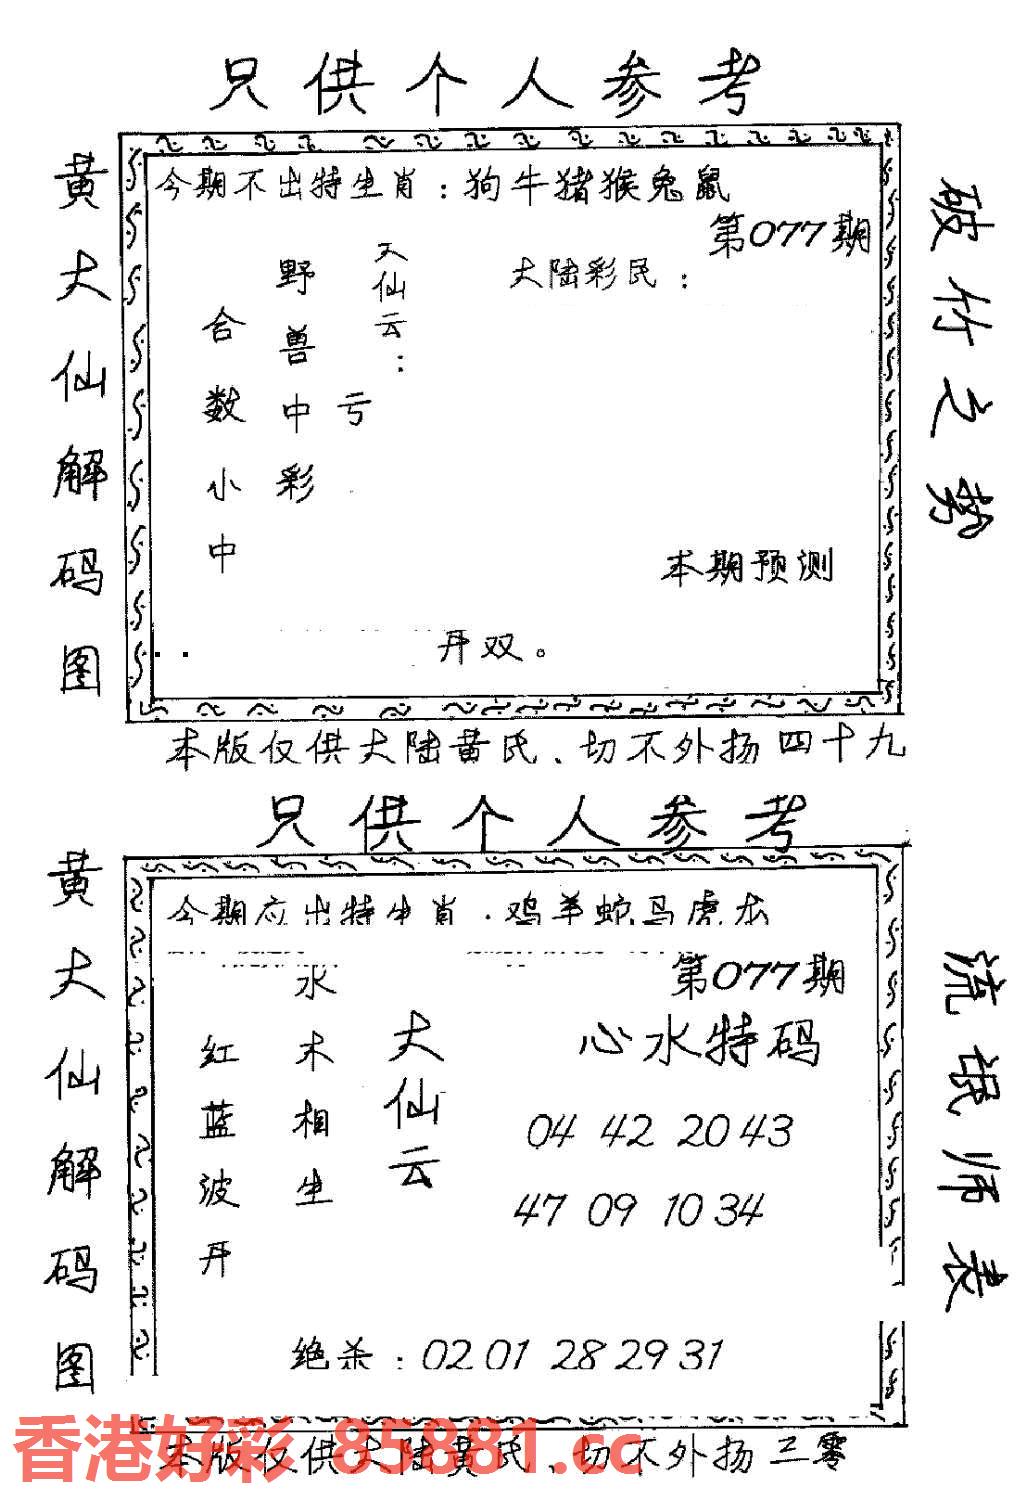 只供个人参考
黄大仙解码图
今期不出特生肖：狗牛猪猴兔鼠
第077期
大陆彩民：
大仙云：
亏
野兽中彩
合数小中
本期预测
开双。
破竹之势
本版仅供大陆黄民、切不外扬四十九
只供个人参考
黄大仙解码图
今期应出特生肖·鸡羊蛇马虎龙
第077期
心水特码
04 42 20 43
47 09 10 34
大仙云
水木相生
红蓝波开
绝杀：02 01 28 29 31
流氓师表
本版仅供大陆黄民、切不外扬三零
香港好彩 85881.cc